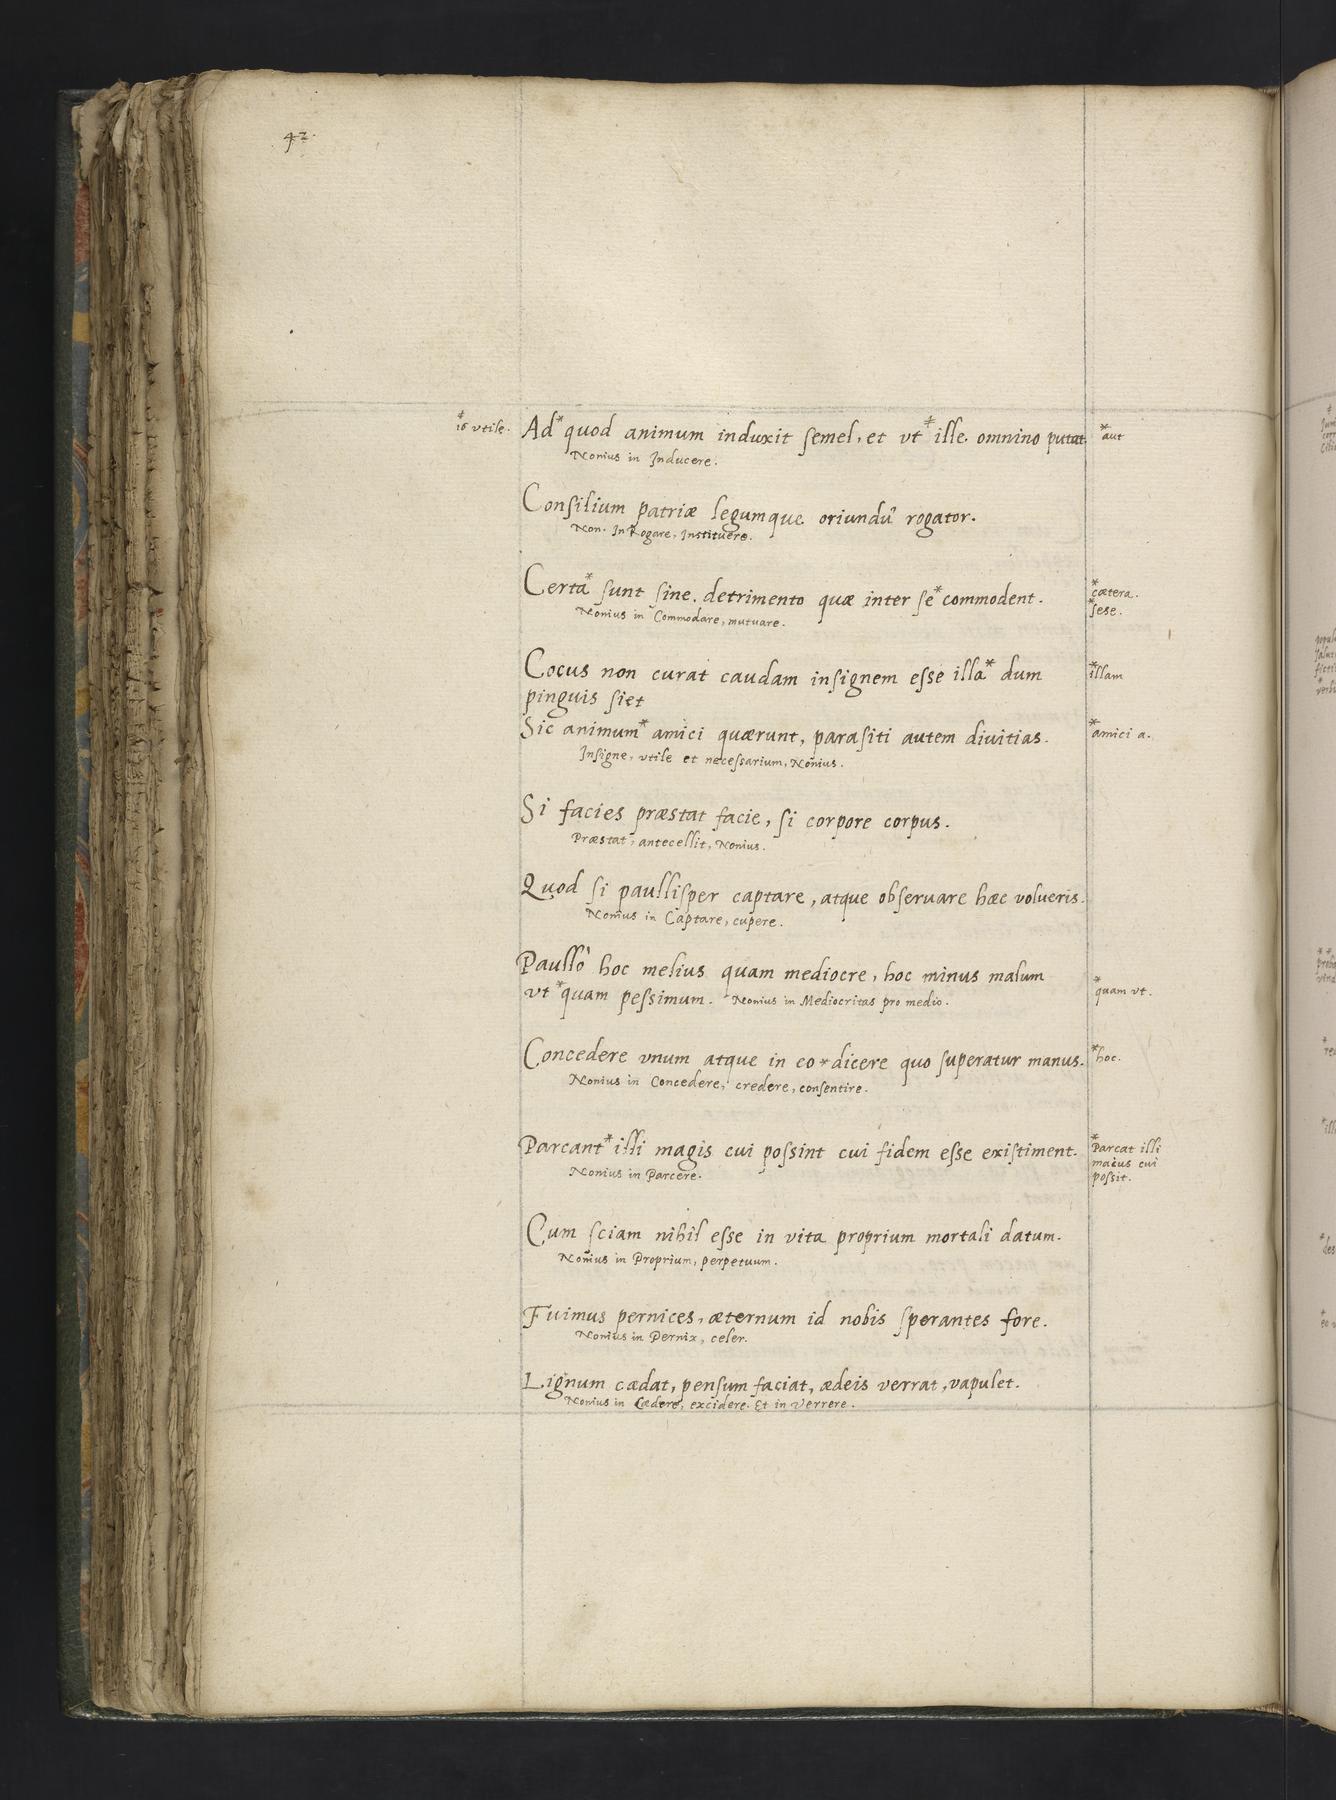 42.
Ad*quod animum induxit semel, et vt‡ ille omnino putat
‡id vtile.
*aut
Nonius in Inducere.
Consilium patriæ legumque oriundū rogator.
Non. In Rogare, Instituere.
Certa* sunt sine detrimento quæ inter se*commodent.
*cætera.
*sese.
Nonius in Commodare, mutuare.
Cocus non curat caudam insignem esse illā* dum
*illam
pinguis siet
Sic animum* amici quærunt, parasiti autem diuitias.
*amici a.
Insigne, vtile et necessarium, Nonius.
Si facies præstat facie, si corpore corpus.
Præstat, antecellit, Nonius.
Quod si paullisper captare, atque obseruare hæc volueris.
Nonius in Captare, cupere.
Paullò hoc melius quam mediocre, hoc minus malum
vt *quam pessimum. Nonius in Mediocritas pro medio.
*quam vt.
Concedere vnum atque in eo*dicere quo superatur manus.
*hoc.
Nonius in Concedere, credere, consentire.
Parcant* illi magis cui possint cui fidem esse existiment.
*Parcat illi
maius cui
possit.
Nonius in Parcere.
Cum sciam nihil esse in vita proprium mortali datum.
Nonius in Proprium, perpetuum.
Fuimus pernices, æternum id nobis sperantes fore.
Nonius in Pernix, celer.
Lignum cædat, pensum faciat, ædeis verrat, vapulet.
Nonius in Cædere, excidere. Et in Verrere.